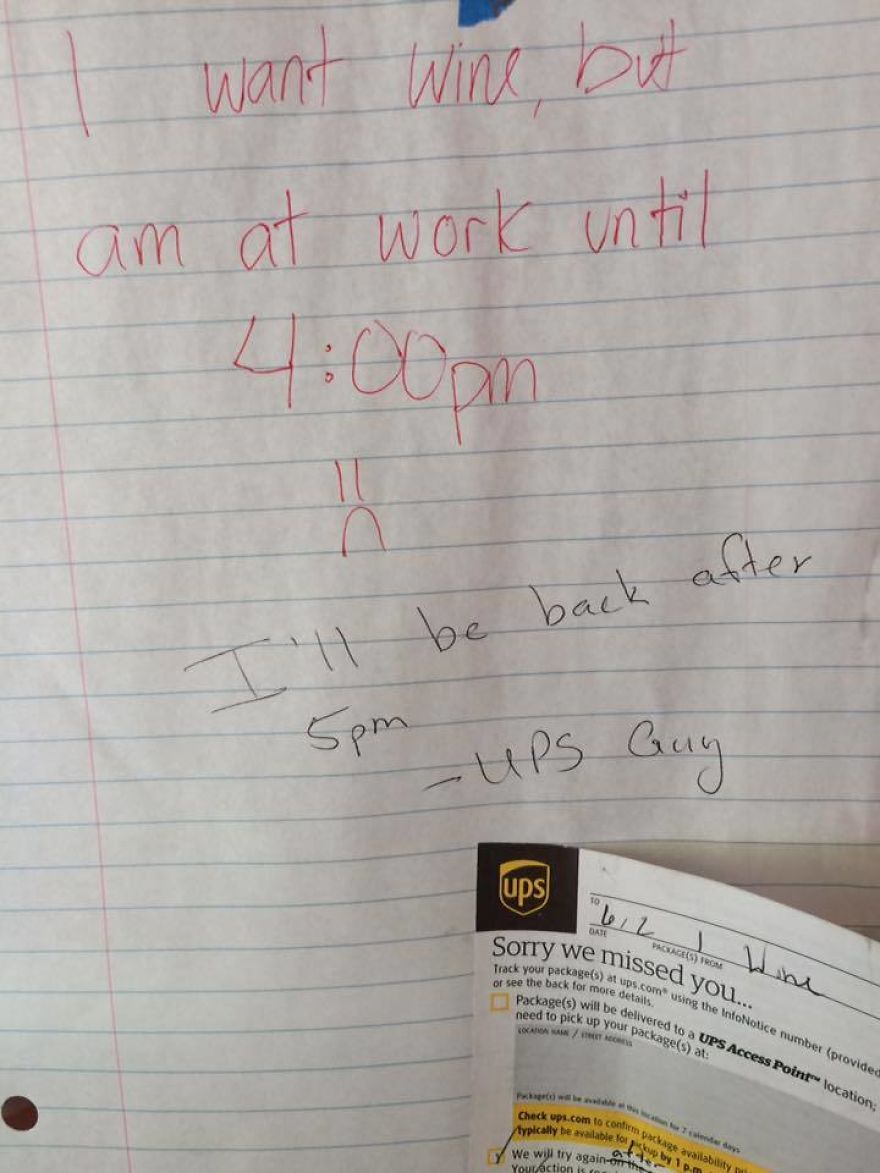 I want wine, but
am at work until
4:00pm
I'll be back after
5pm
-UPS Guy
ups
TO
6/2 1 Wine
DATE PACKAGE(S) FROM
Sorry we missed you...
Track your package(s) at ups.com® using the InfoNotice number (provided
or see the back for more details.
Package(s) will be delivered to a UPS Access Point™ location;
need to pick up your package(s) at:
LOCATION NAME / STREET ADDRESS
Package(s) will be available at this location for 7 calendar days
Check ups.com to confirm package availability
typically be available for pickup by 1 p.m
We will try again on the after
Your action is